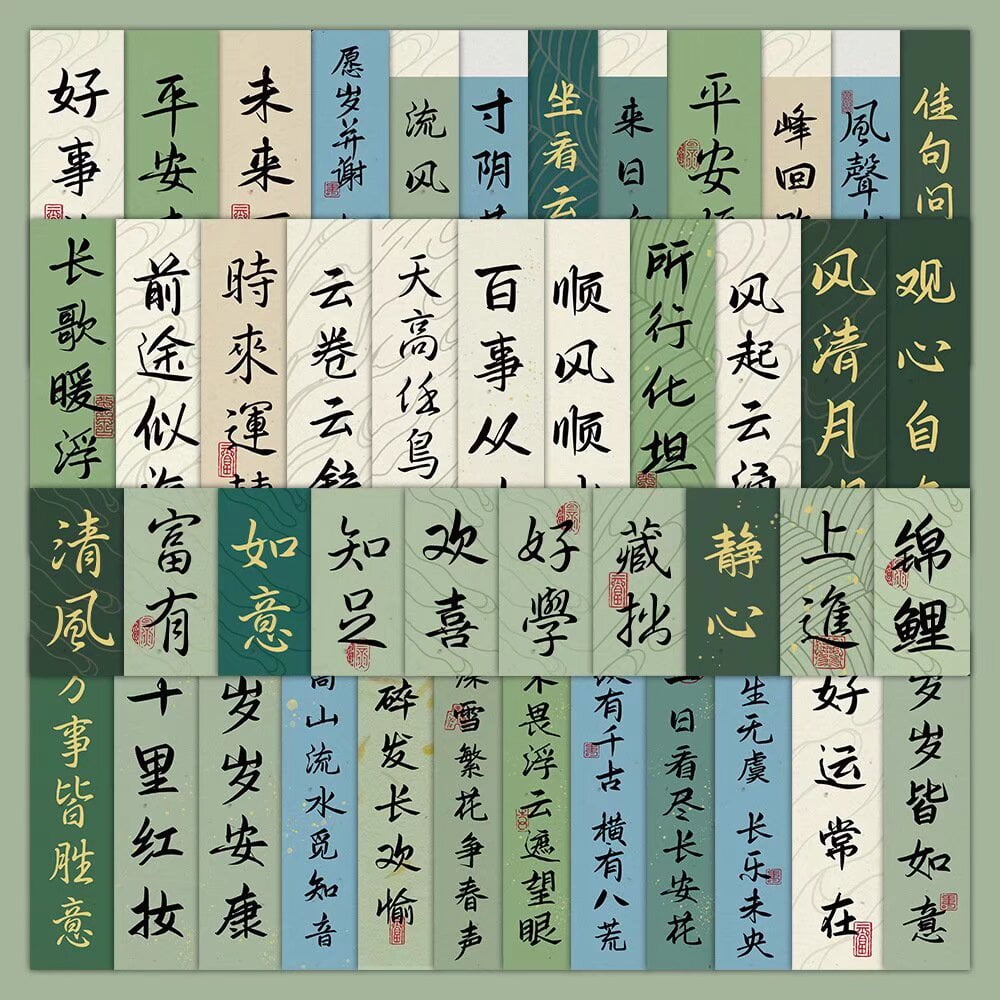 好事
平安
未来
愿岁并谢
流风
寸阴
坐看云
来日
平安
峰回
風聲
佳句问
长歌暖浮
前途似海
時來運轉
云卷云舒
天高任鸟
百事从
顺风顺
所行化坦
风起云涌
风清月明
观心自
清風
富有
如意
知足
欢喜
好學
藏拙
静心
上進
锦鲤
万事皆胜意
十里红妆
岁岁安康
高山流水觅知音
碎发长欢愉
雪繁花争春声
不畏浮云遮望眼
纵有千古 横有八荒
一日看尽长安花
生无虞 长乐未央
好运常在
岁岁皆如意